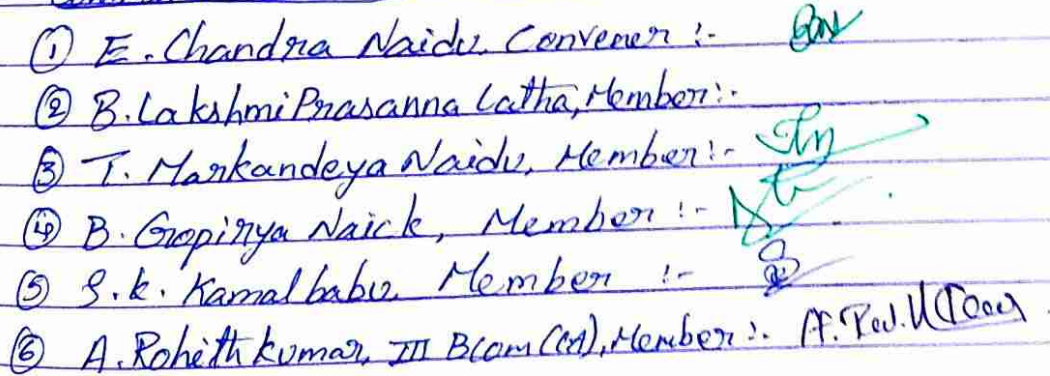 ① E. Chandra Naidu. Convener :-
② B. Lakshmi Prasanna Latha, Member :-
③ T. Markandeya Naidu, Member :-
④ B. Gropiriya Naick, Member :-
⑤ S.k. Kamal babu Member :-
⑥ A. Rohith kumar, III B(om (CA), Member :-